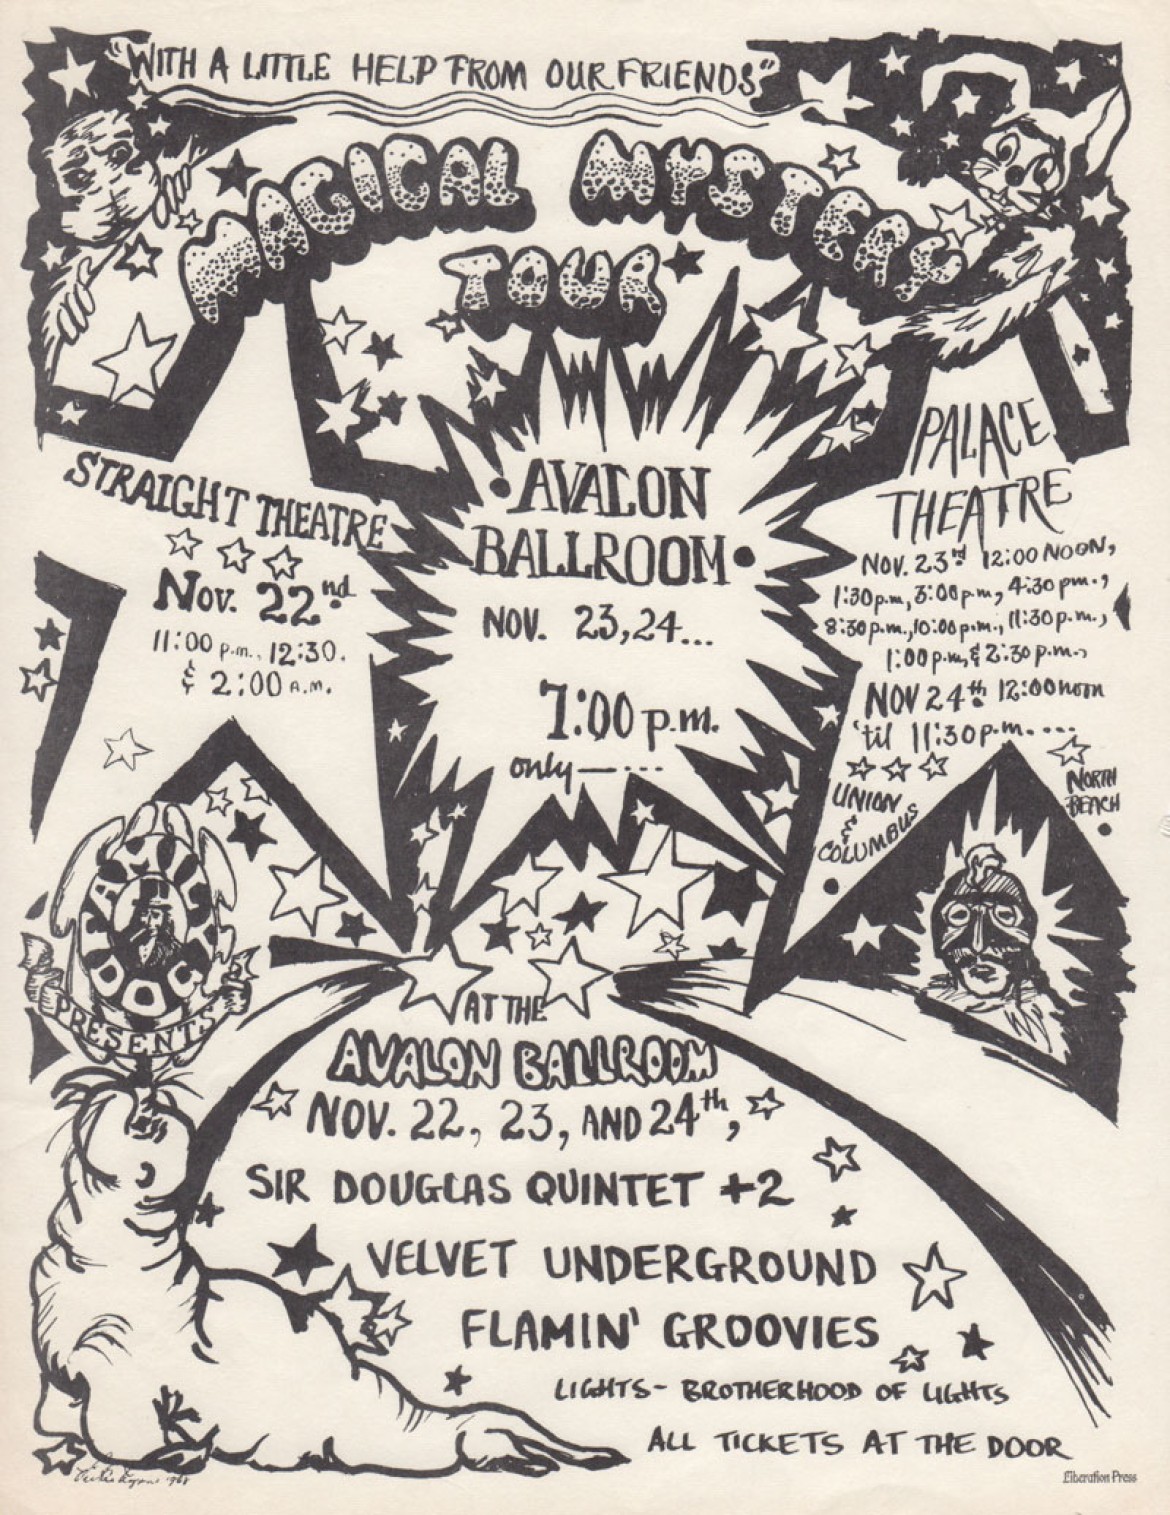 "WITH A LITTLE HELP FROM OUR FRIENDS"
MAGICAL MYSTERY
TOUR
STRAIGHT THEATRE
Nov. 22nd
11:00 p.m., 12:30.
& 2:00 A.M.
AVALON
BALLROOM
NOV. 23, 24...
7:00 p.m.
only—...
PALACE
THEATRE
NOV. 23rd 12:00 NOON,
1:30 p.m, 3:00 p.m, 4:30 pm.,
8:30 p.m., 10:00 p.m., 11:30 p.m.,
1:00 p.m, & 2:30 p.m.,
NOV 24th 12:00 noon
'til 11:30 p.m. ....
UNION
&
COLUMBUS
NORTH
BEACH
FAMILY DOG
PRESENTS
AT THE
AVALON BALLROOM
NOV. 22, 23, AND 24th,
SIR DOUGLAS QUINTET +2
VELVET UNDERGROUND
FLAMIN' GROOVIES
LIGHTS - BROTHERHOOD OF LIGHTS
ALL TICKETS AT THE DOOR
1968
Liberation Press